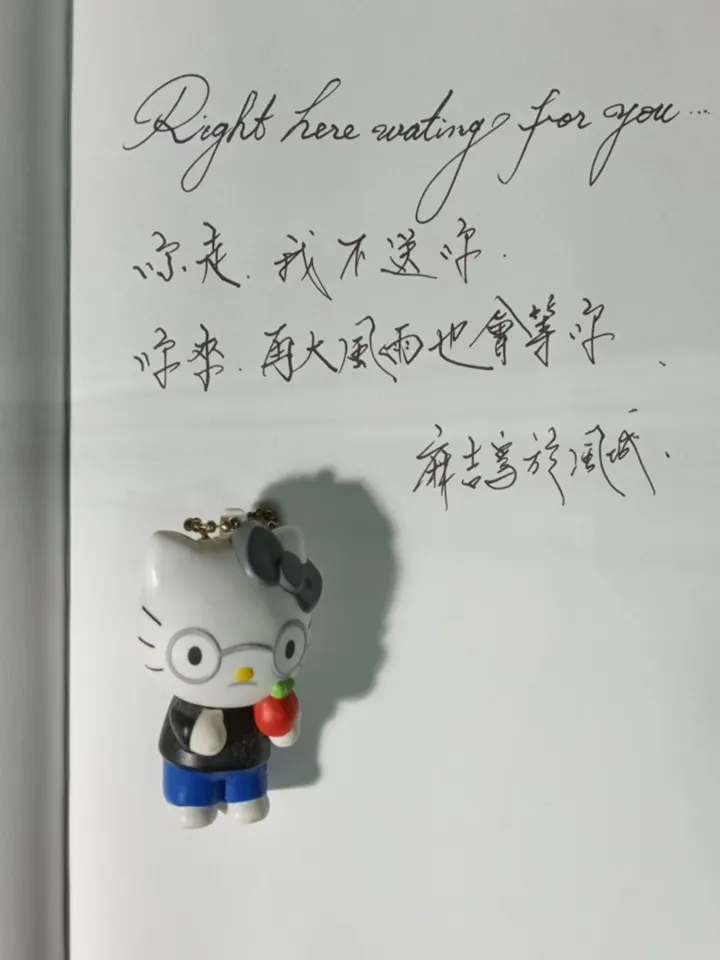 Right here wating for you...
你走.我不送你.
你來.再大風雨也會等你.
麻吉寫於風城.